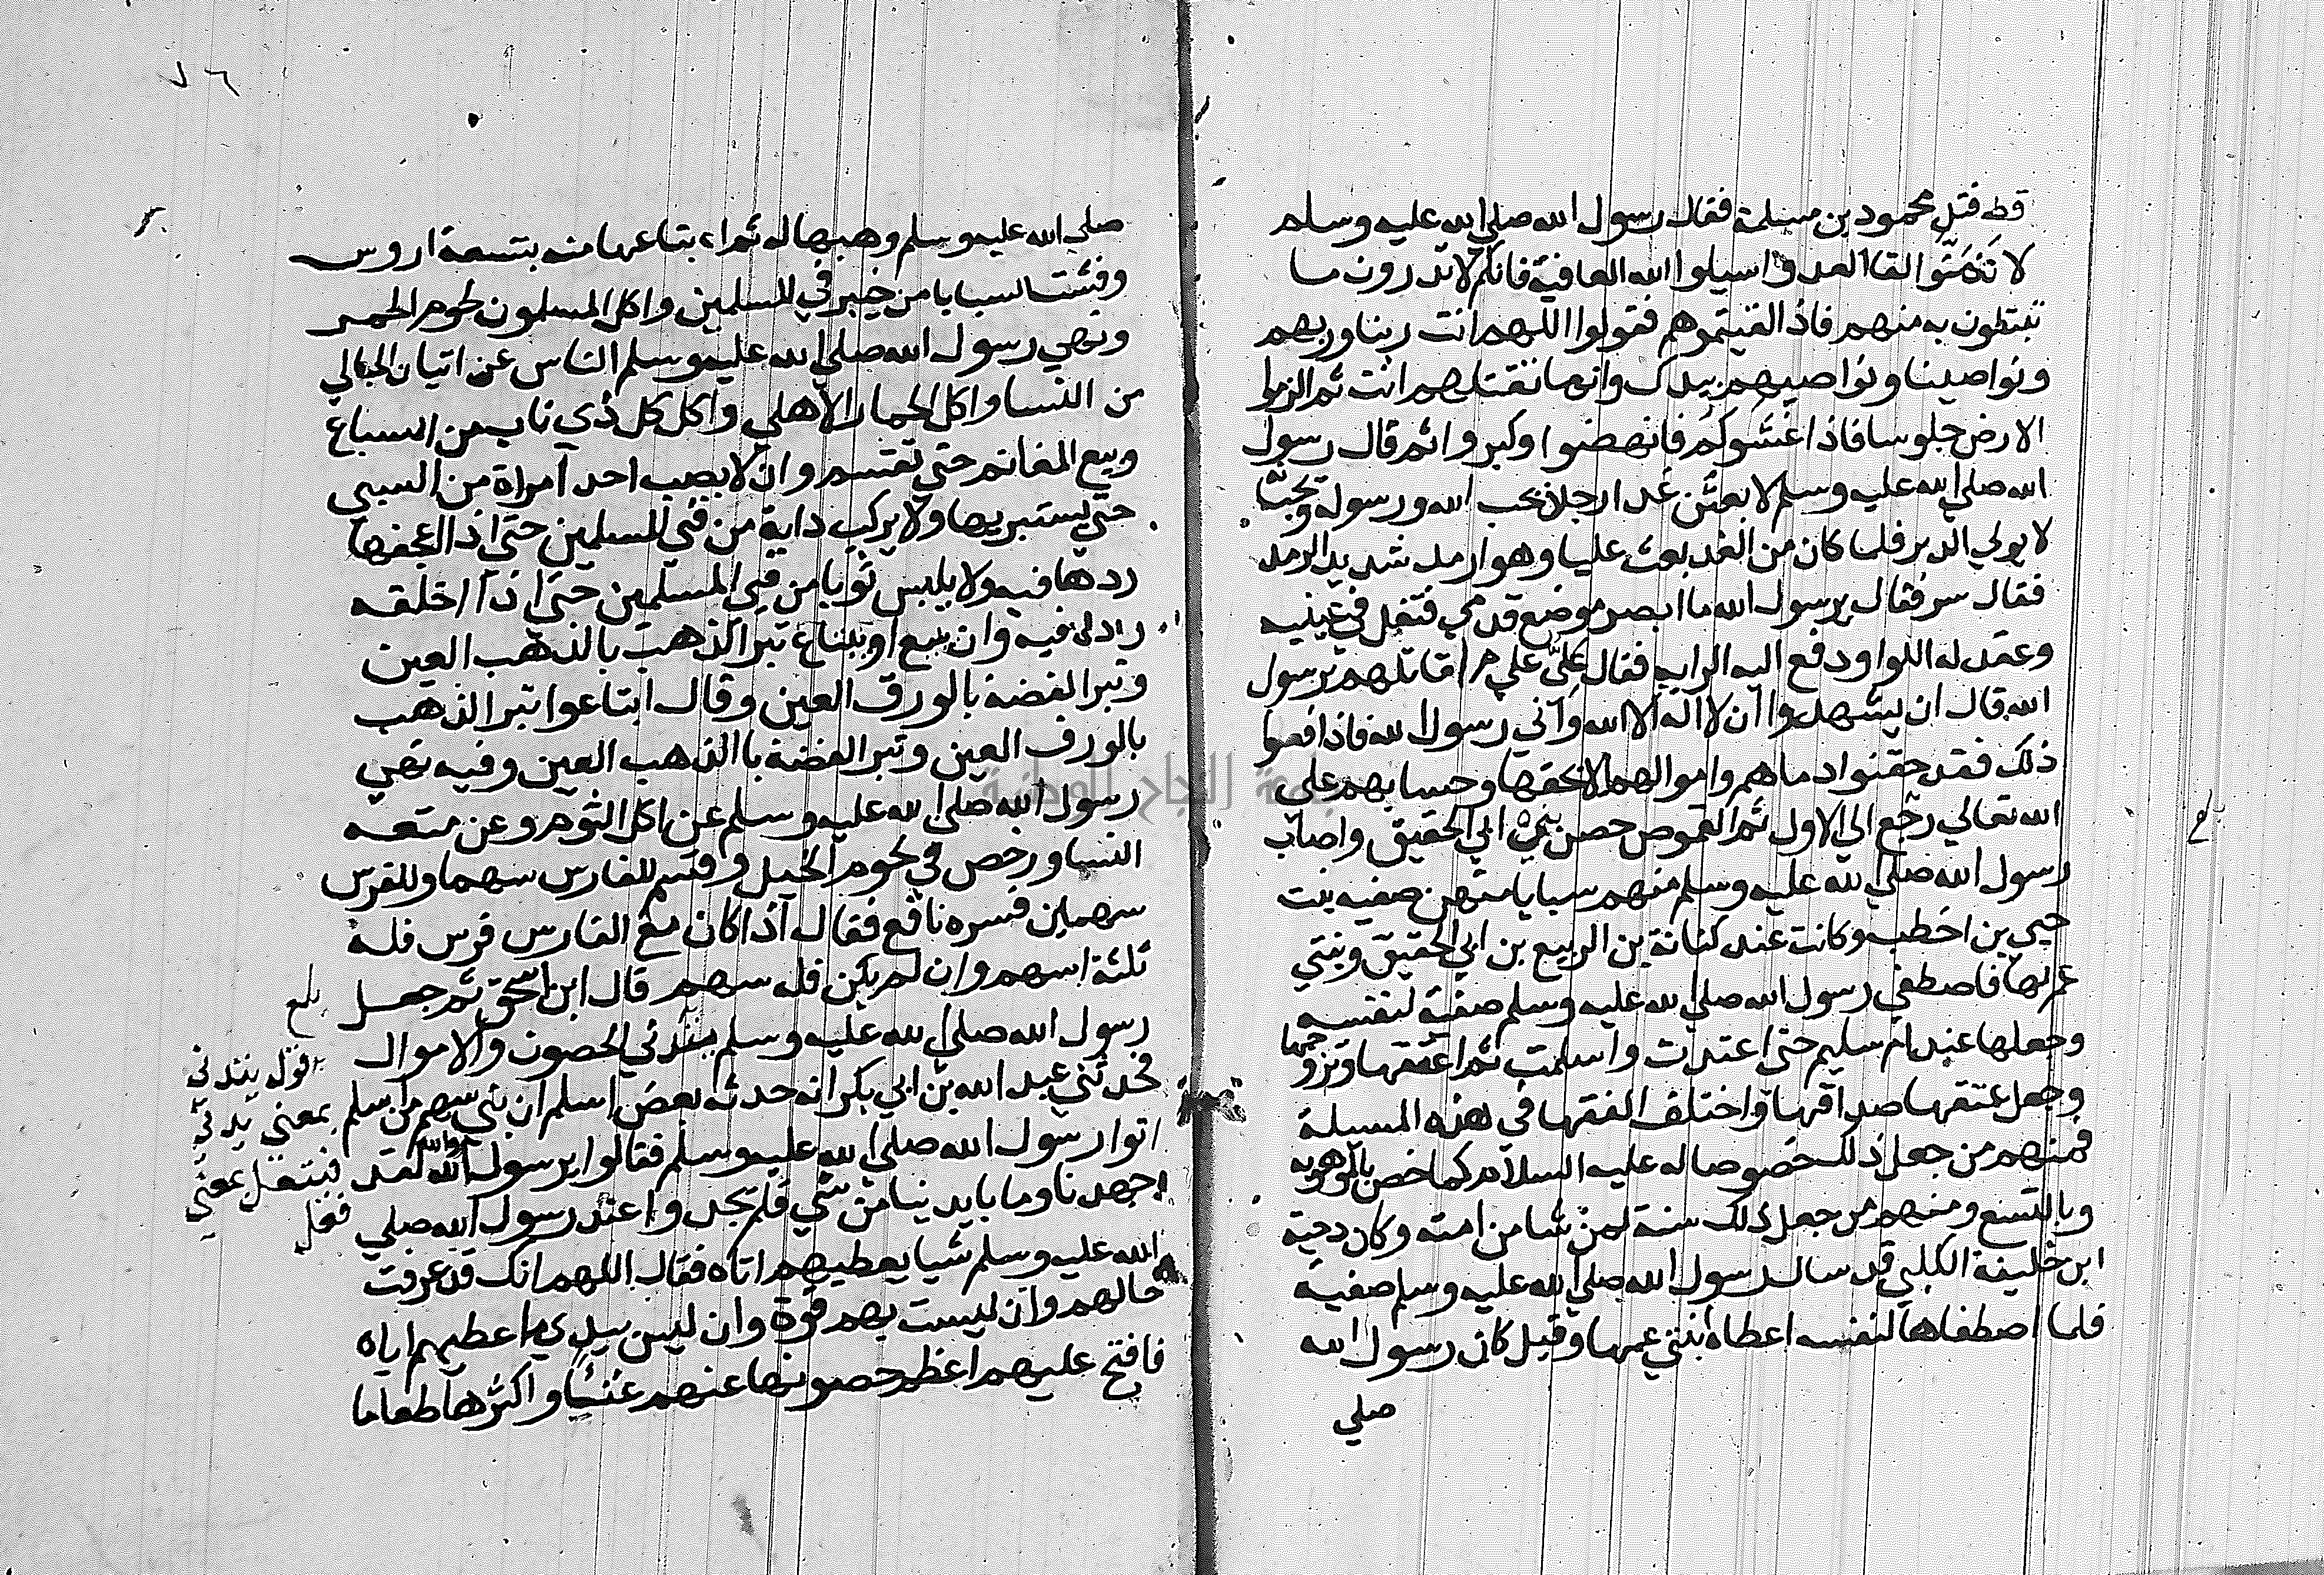 قط قتل محمود بن مسلمة فقال رسول الله صلي الله عليه وسلم
لا تتمنوا لقا العدو واسيلوا الله العافية فانكم لا تدرون ما
تبتلون به منهم فاذ القيتموهم فقولوا اللهم انت ربنا وربهم
ونواصينا ونواصيهم بيدك وانما نقتلهم انت ثم الزموا
الارض جلوسا فاذا غشوكم فانهضوا وكبروا ثم قال رسول
الله صلي الله عليه وسلم لابعثن غدا رجلا يحب الله ورسوله ويحبا
لا يولي الدبر فلما كان من الغد بعث عليا وهو ارمد شديد الرمد
فقال سر فقال يرسول الله ما ابصر موضع قدمي فتفل في عينيه
وعقد له اللوا ودفع اليه الرايه فقال علي علي م اقاتلهم يرسول
الله قال ان يشهدوا ان لا اله الا الله واني رسول الله فاذا فعلوا
ذلك فقد حقنوا دماهم واموالهم الا بحقها وحسابهم علي
الله تعالي رجع الي الاول ثم القموص حصن بني ابي الحقيق واصاب
رسول الله صلي الله عليه وسلم منهم سبايا منهن صفيه بنت
حيي بن اخطب وكانت عند كنانة بن الربيع بن ابي الحقيق وبنتي
عم لها فاصطفي رسول الله صلي الله عليه وسلم صفية لنفسه
وجعلها عند ام سليم حتى اعتدت واسلمت ثم اعتقها وتزوجها
وجعل عتقها صداقها واختلف الفقها في هذه المسيلة
فمنهم من جعل ذلك خصوصا له عليه السلام كما خص بالموهوبه
وبالتسع ومنهم من جعل ذلك سنة لمن شا من امته وكان دحية
ابن خليفة الكلبي قد سال رسول الله صلي الله عليه وسلم صفية
فلما اصطفاها لنفسه اعطاه ابنتي عمها وقيل كان رسول الله
صلي
٧٦
صلي الله عليه وسلم وهبها له ثم ابتاعها منه بتسعة اروس
وفشت السبايا من خيبر في المسلمين واكل المسلمون لحوم الحمر
ونهي رسول الله صلي الله عليه وسلم الناس عن اتيان الحبالي
من النسا واكل الحمار الاهلي واكل كل ذي ناب من السباع
وبيع المغانم حتي تقتسم وان لا يصيب احد امراة من السبي
حتي يستبريها ولا يركب دابة من في المسلمين حتي اذا اعجفها
ردها فيه ولا يلبس ثوبا من في المسلمين حتي اذا اخلقه
رده فيه وان يبيع او يبتاع تبر الذهب بالذهب العين
وتبر الفضة بالورق العين وقال ابتاعوا تبر الذهب
بالورق العين وتبر الفضة باالذهب العين وفيه نهي
رسول الله صلي الله عليه وسلم عن اكل الثوم وعن متعه
النسا ورخص في لحوم الخيل وقسم للفارس سهما وللفرس
سهمين فسره نافع فقال اذا كان مع الفارس فرس فله
ثلثة اسهم وان لم يكن فله سهم قال ابن اسحق ثم جعل
بلغ
رسول الله صلي الله عليه وسلم يتدني الحصون والاموال
فحدثني عبد الله بن ابي بكر انه حدثه بعض اسلم ان بني سهم من اسلم
اتوا رسول الله صلي الله عليه وسلم فقالوا يرسول الله والله لقد
جهدنا وما بايدينا من شي فلم يجدوا عند رسول الله صلي
قوله يتدني
بمعني يدني
فتفعل بمعني
فعل
الله عليه وسلم شيا يعطيهم اتاه فقال اللهم انك قد عرفت
حالهم وان ليست بهم قوة وان ليس بيدي ما اعطيهم اياه
فافتح عليهم اعظم حصونها عنهم غنئا واكثرها طعاما
جامعة النجاح الوطنية